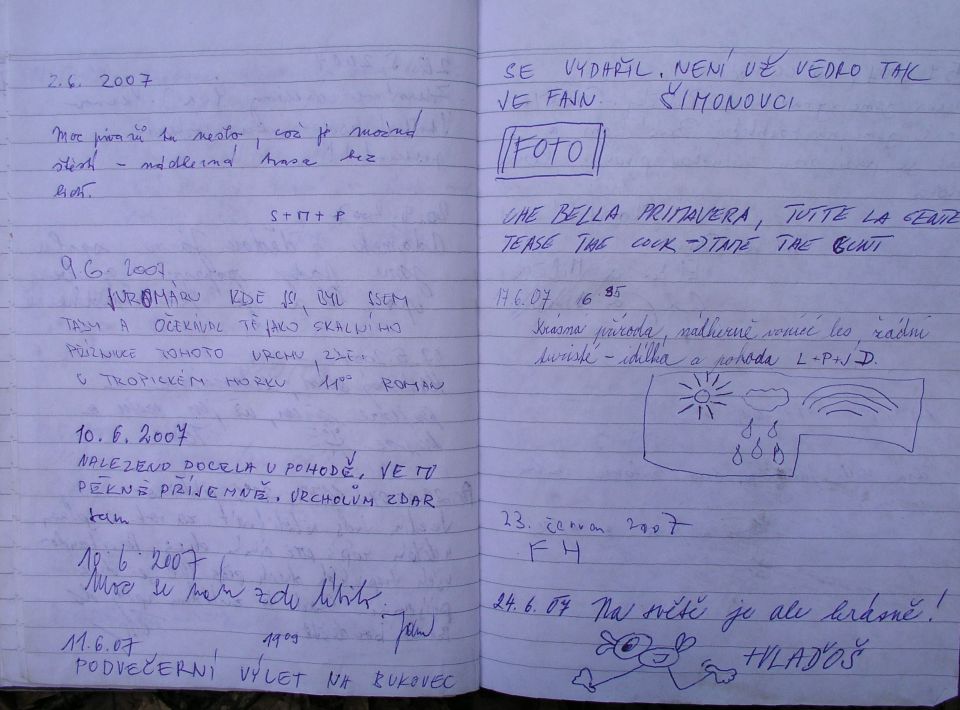 2.6. 2007
Moc pívařů tu nesto, což je možná
štěstí - nádherná trasa bez
lidí.
S+M+P
9.6. 2007
KDE JSI, BYL JSEM
TADY A OČEKÁVAL TĚ JAKO SKALNÍHO
PŘÍZNIVCE TOHOTO VRCHU, ZDE..
V TROPICKÉM HORKU 11⁰⁰ ROMAN
10.6. 2007
NALEZENO DOCELA V POHODĚ, JE TO
PĚKNÉ PŘÍJEMNÉ. VRCHOLŮM ZDAR
10.6.2007
Moc se nám zde líbilo.
11.6.07 19⁰⁹
PODVEČERNÍ VÝLET NA BUKOVEC
SE VYDAŘIL. NENÍ UŽ VEDRO TAK
JE FAJN. ŠIMONOVCI
FOTO
CHE BELLA PRIMAVERA, TUTTE LA GENTE
TEASE THE COCK → TAME THE CUNT
17.6.07 16 35
Krásná příroda, nádherně vonící les, žádní
turisté - idilka a pohoda L+P+J D.
23. červen 2007
F H
24.6.07 Na světě je ale krásně!
+VLAĎOŠ